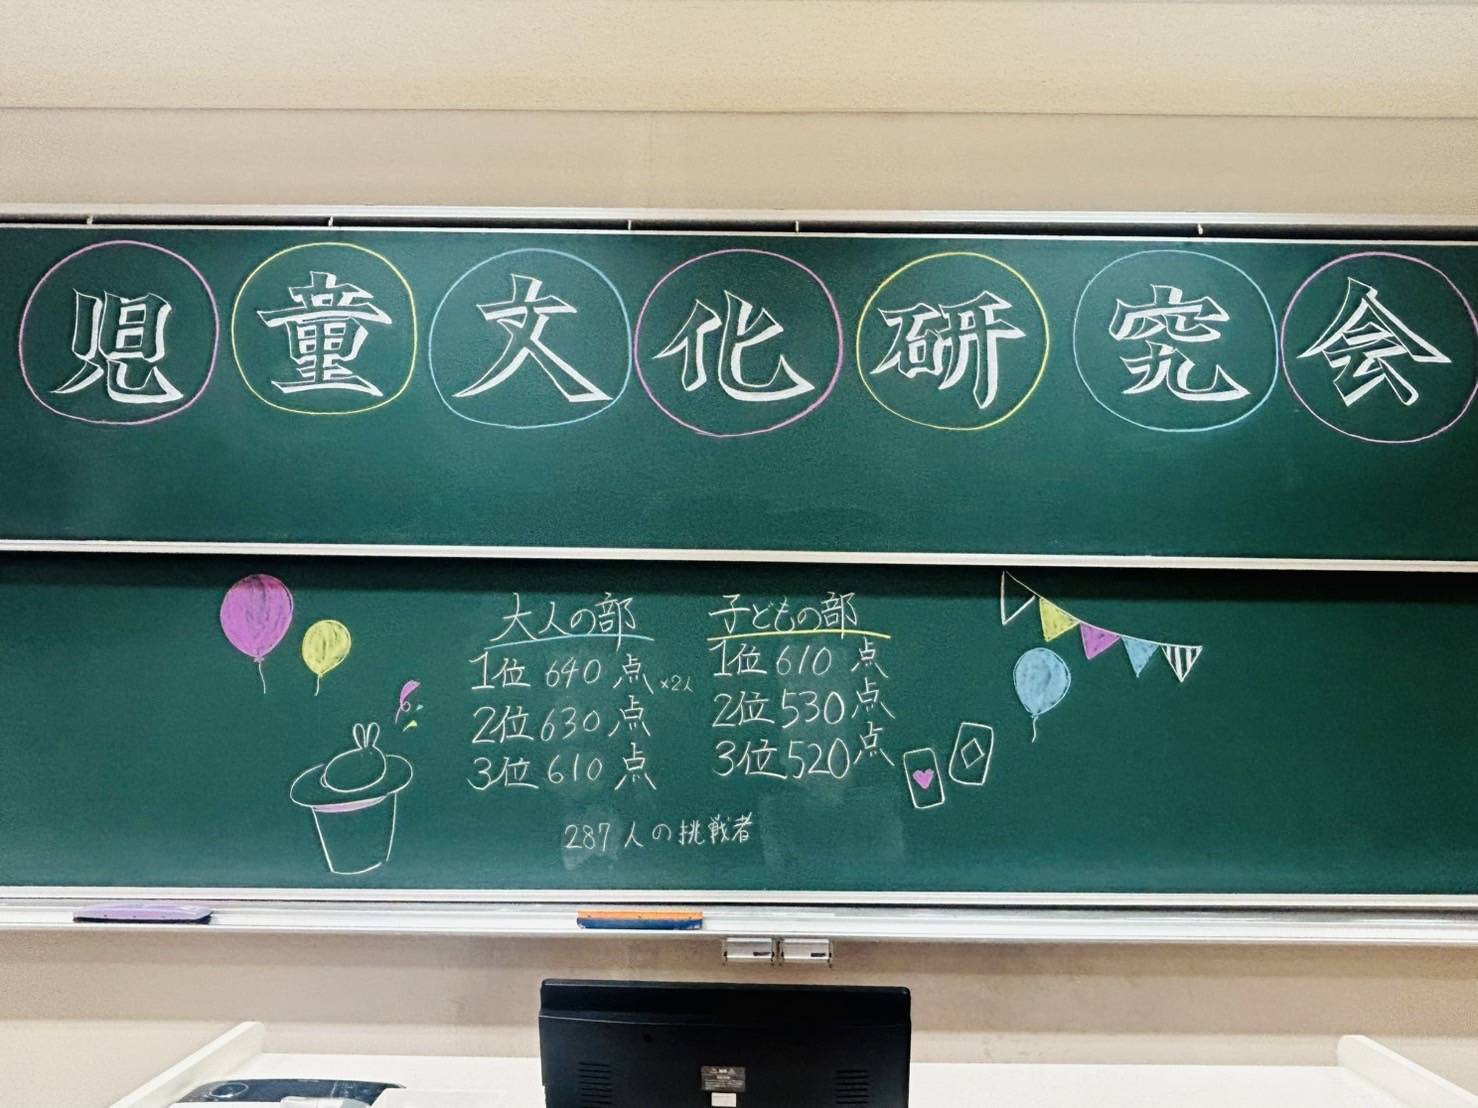 児童文化研究会
大人の部
1位 640点 ×2人
2位 630点
3位 610点
子どもの部
1位 610点
2位 530点
3位 520点
287人の挑戦者